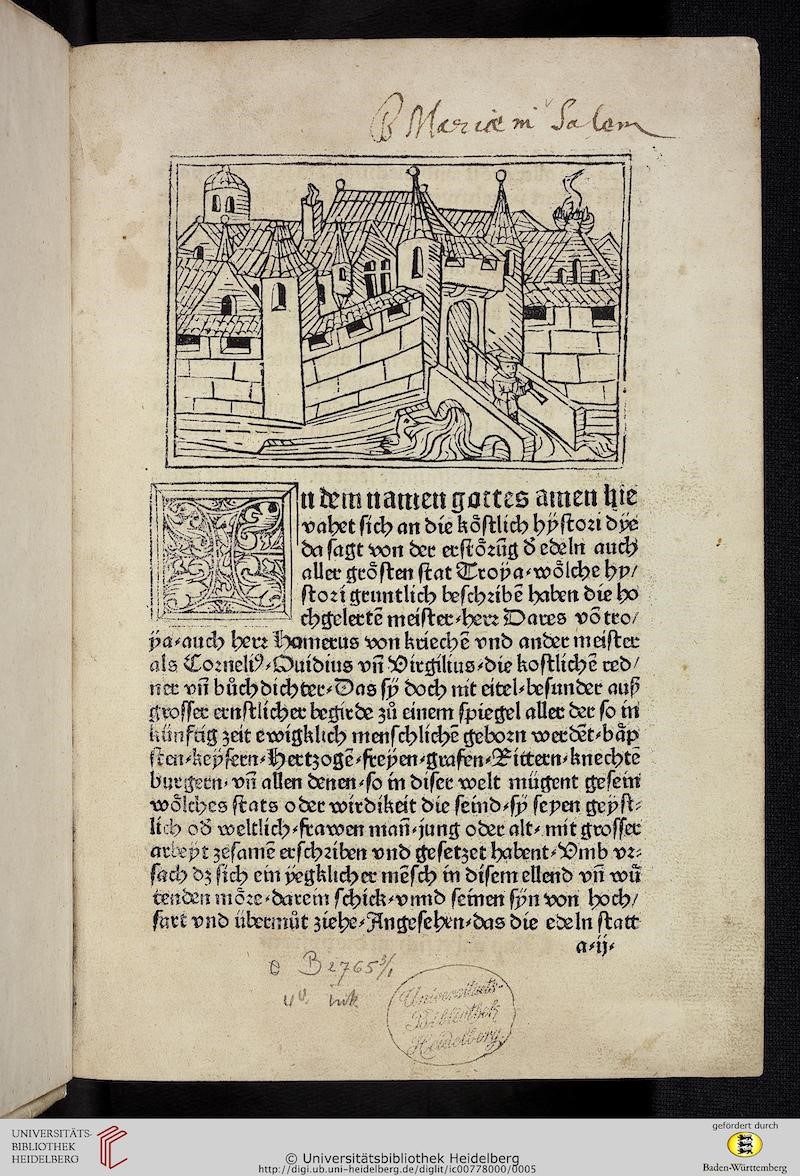 B Mariæ in Salem
In dem namen gottes amen hie
vahet sich an die kőstlich hÿstori dÿe
da sagt von der erstőrūg d̕ edeln auch
aller grősten stat Troÿa⸗wőlche hy/
stori gruntlich beschribē haben die ho
chgelertē meister⸗herr Dares vō tro/
ÿa⸗auch herr Homerus von kriechē vnd ander meister
als Corneliꝰ⸗Ouidius vñ Virgilius⸗die kostlichē red/
ner vñ bůch dichter⸗Das sÿ doch nit eitel⸗besunder auß
grosser ernstlicher begirde zů einem spiegel aller der so in
künftig zeit ewigklich menschlichē geborn werdēt⸗bäp
sten⸗keÿsern⸗Hertzogē⸗freÿen⸗grafen⸗Rittern⸗knechtē
burgern⸗vñ allen denen⸗so in diser welt mügent gesein
wőlches stats oder wirdikeit die seind⸗sÿ seyen geÿst⸗
lich od̕ weltlich⸗frawen mañ⸗jung oder alt⸗mit grosser
arbeÿt zesamē erschriben vnd gesetzet habent⸗Vmb vr⸗
sach dz sich ein ÿegklicher mēsch in disem ellend vñ wů
tenden mőre⸗darein schick⸗vnnd seinen sÿn von hoch/
fart vnd übermůt ziehe⸗Angesehen⸗das die edeln statt
a⸗ij⸗
B 2765 3/1
4° ink
Universitäts-
Bibliothek
Heidelberg
UNIVERSITÄTS-
BIBLIOTHEK
HEIDELBERG
© Universitätsbibliothek Heidelberg
http://digi.ub.uni-heidelberg.de/diglit/ic00778000/0005
gefördert durch
Baden-Württemberg